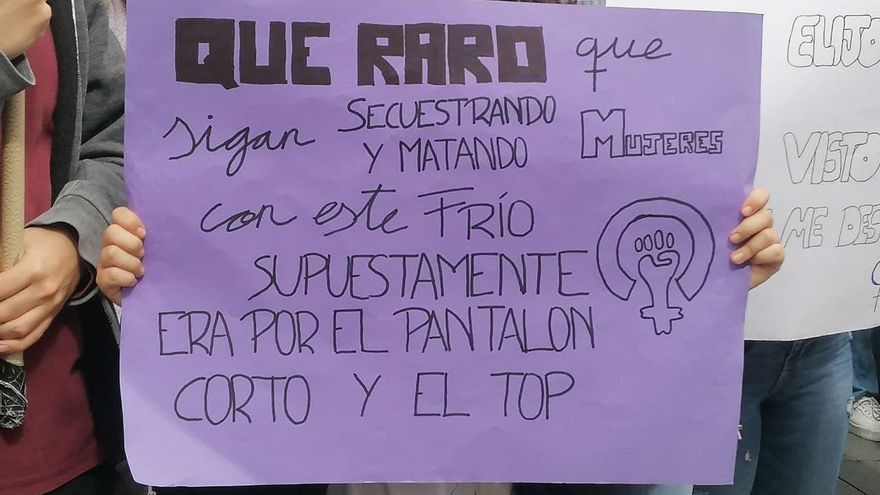 QUE RARO que
sigan SECUESTRANDO Y MATANDO MUJERES
con este FRÍO
SUPUESTAMENTE
ERA POR EL PANTALON
CORTO Y EL TOP
VISTO
ME